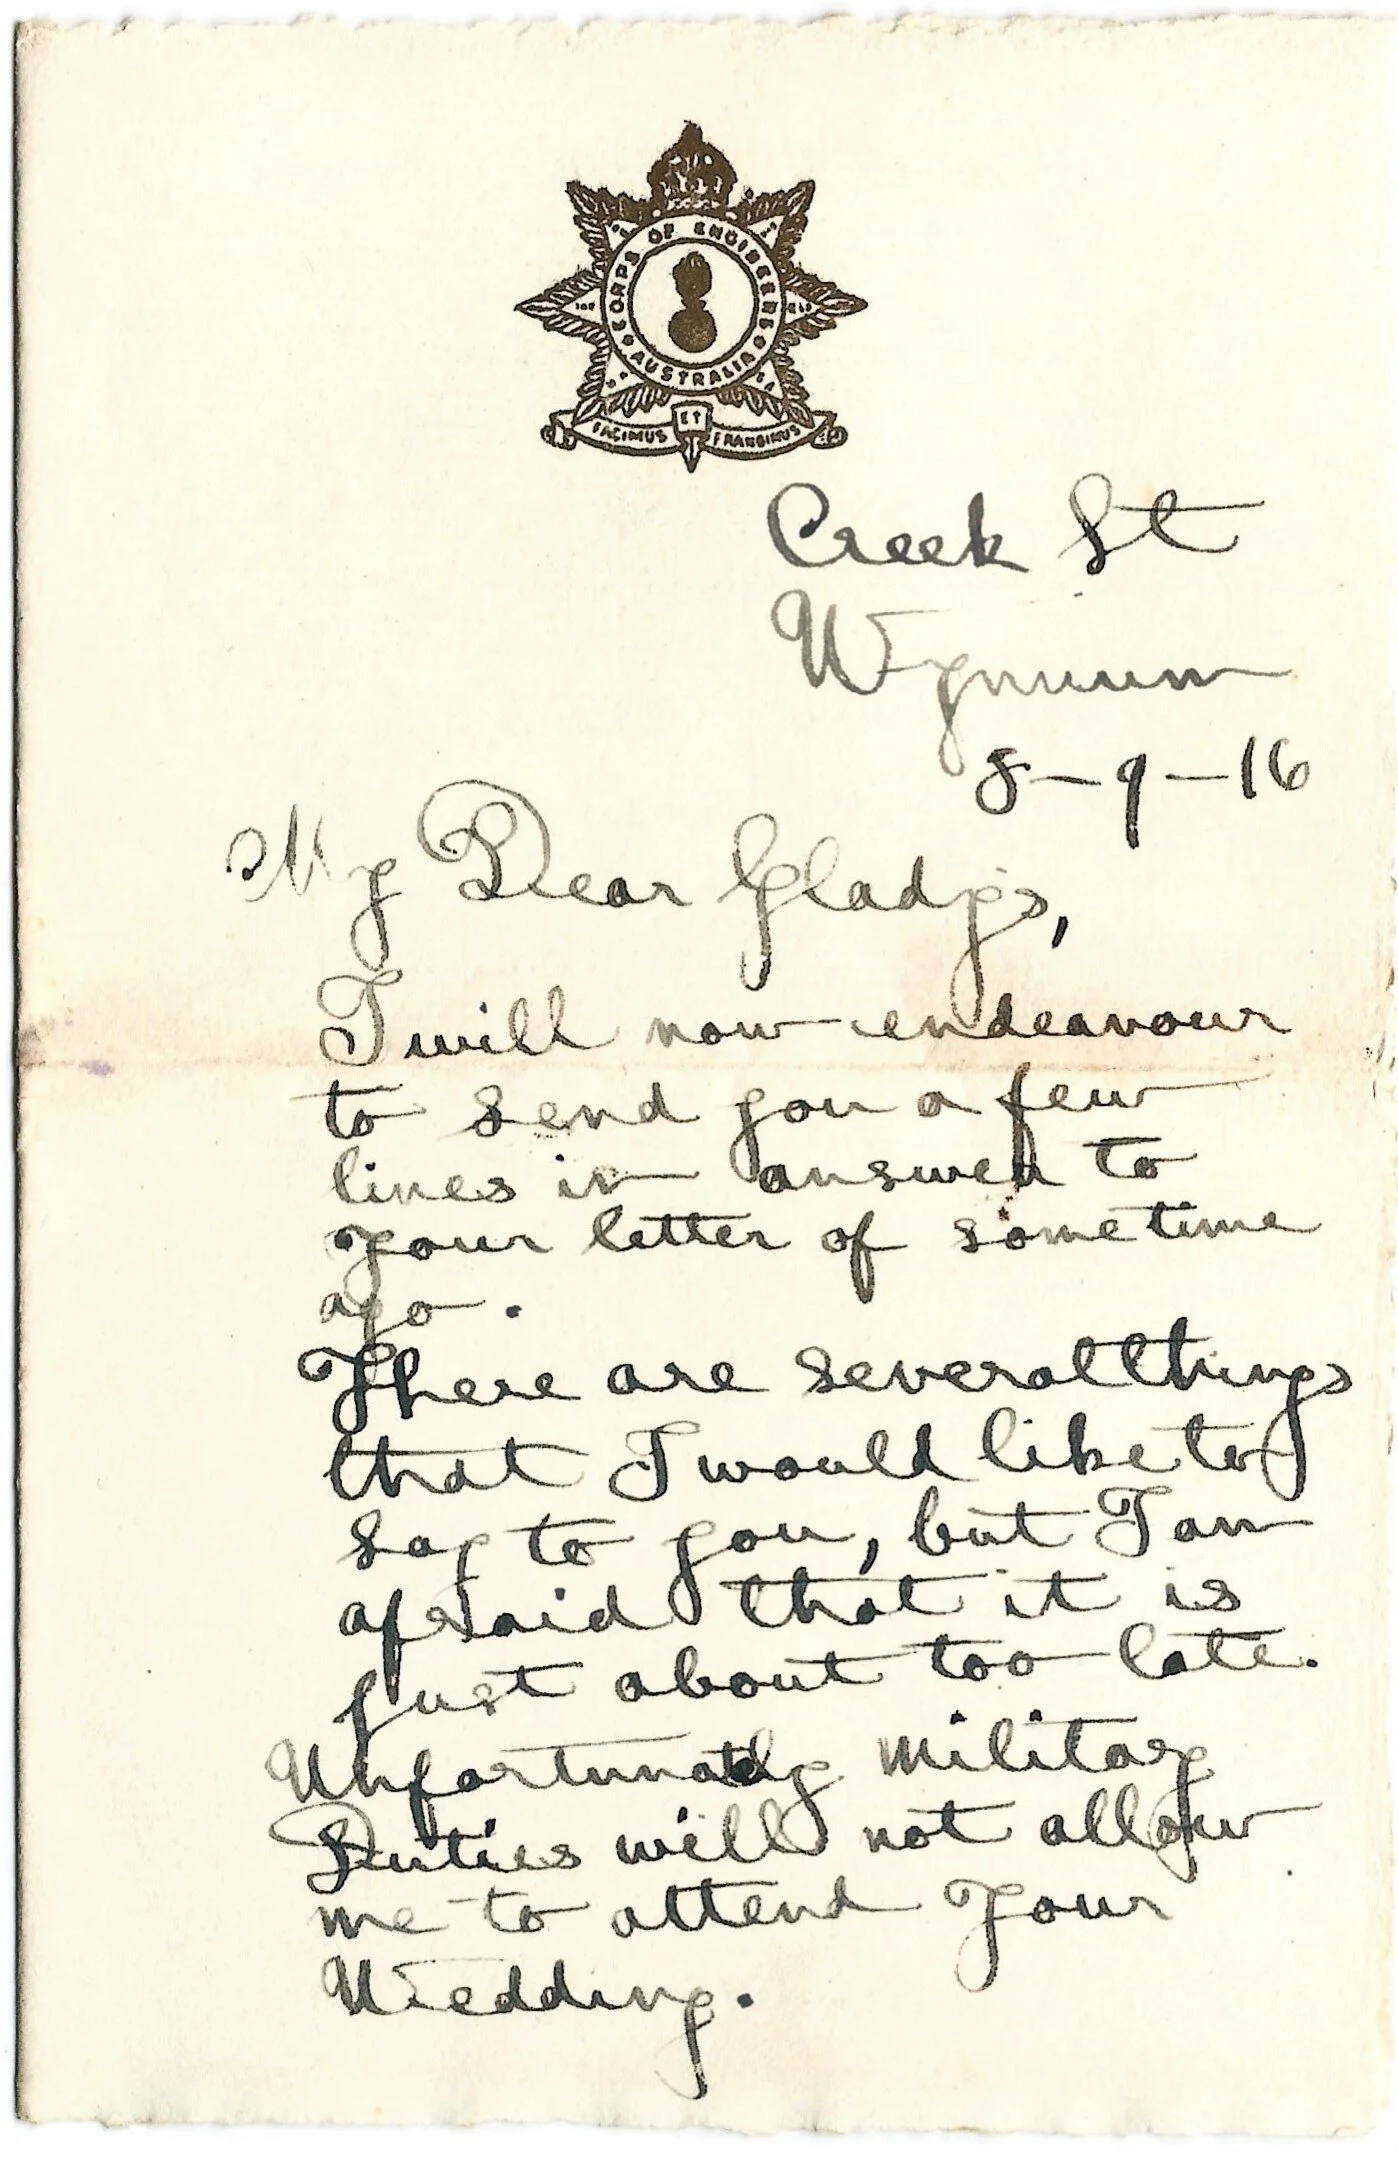 CORPS OF ENGINEERS
AUSTRALIA
FACIMUS ET FRANGIMUS
Creek St
Wynnum
8-9-16
My Dear Gladys,
I will now endeavour
to send you a few
lines in answer to
your letter of sometime
ago.
There are several things
that I would like to
say to you, but I am
afraid that it is
just about too late.
Unfortunately Military
Duties will not allow
me to attend your
Wedding.